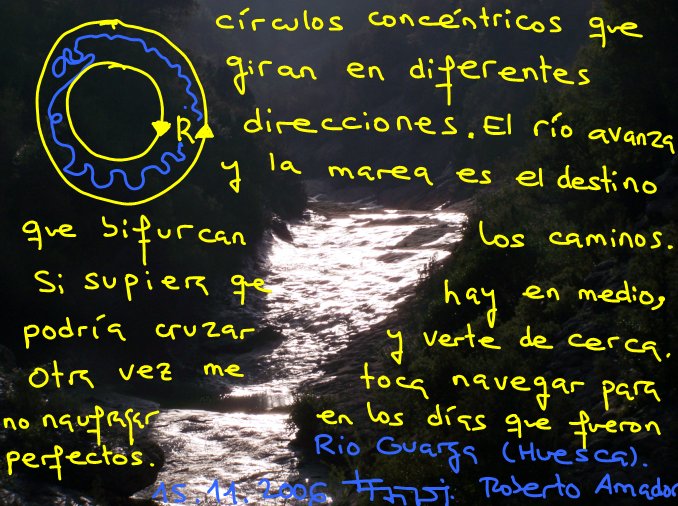 círculos concéntricos que
giran en diferentes
R direcciones. El río avanza
y la marea es el destino
que bifurcan los caminos.
Si supiera que hay en medio,
podría cruzar y verte de cerca.
Otra vez me toca navegar para
no naufragar en los días que fueron
perfectos. Rio Guarga (Huesca).
15.11.2006 Roberto Amador